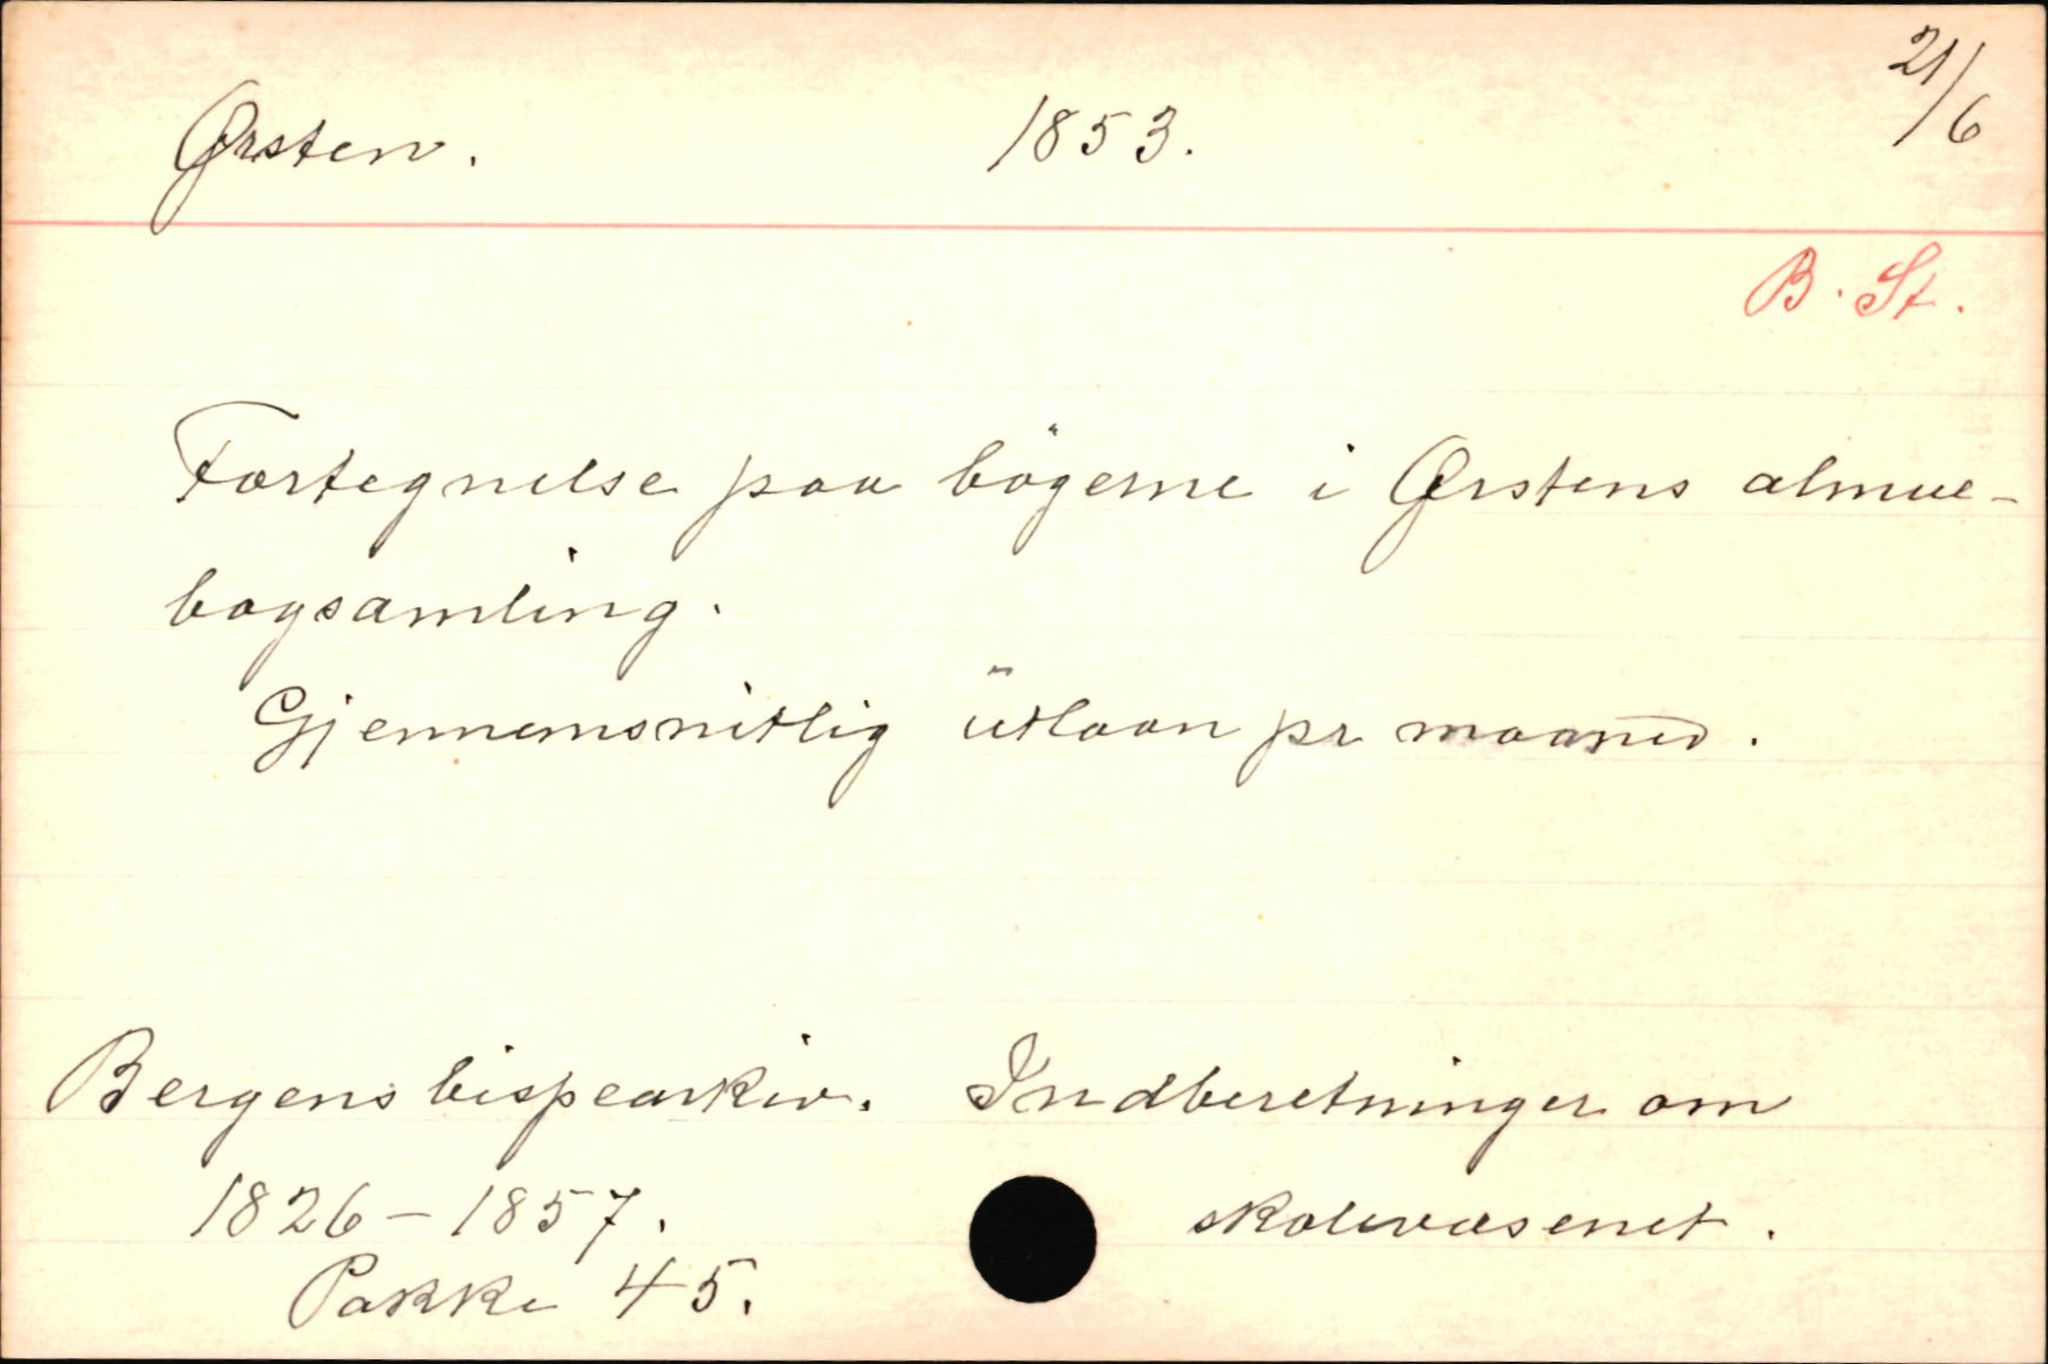 Ørsten. 1853. 21/6
B. St.
Fortegnelse paa bögerne i Ørstens almue-
bogsamling.
Gjennemsnitlig utlaan pr maaned.
Bergens bispearkiv. Indberetninger om
1826-1857. skolevæsenet.
Pakke 45.